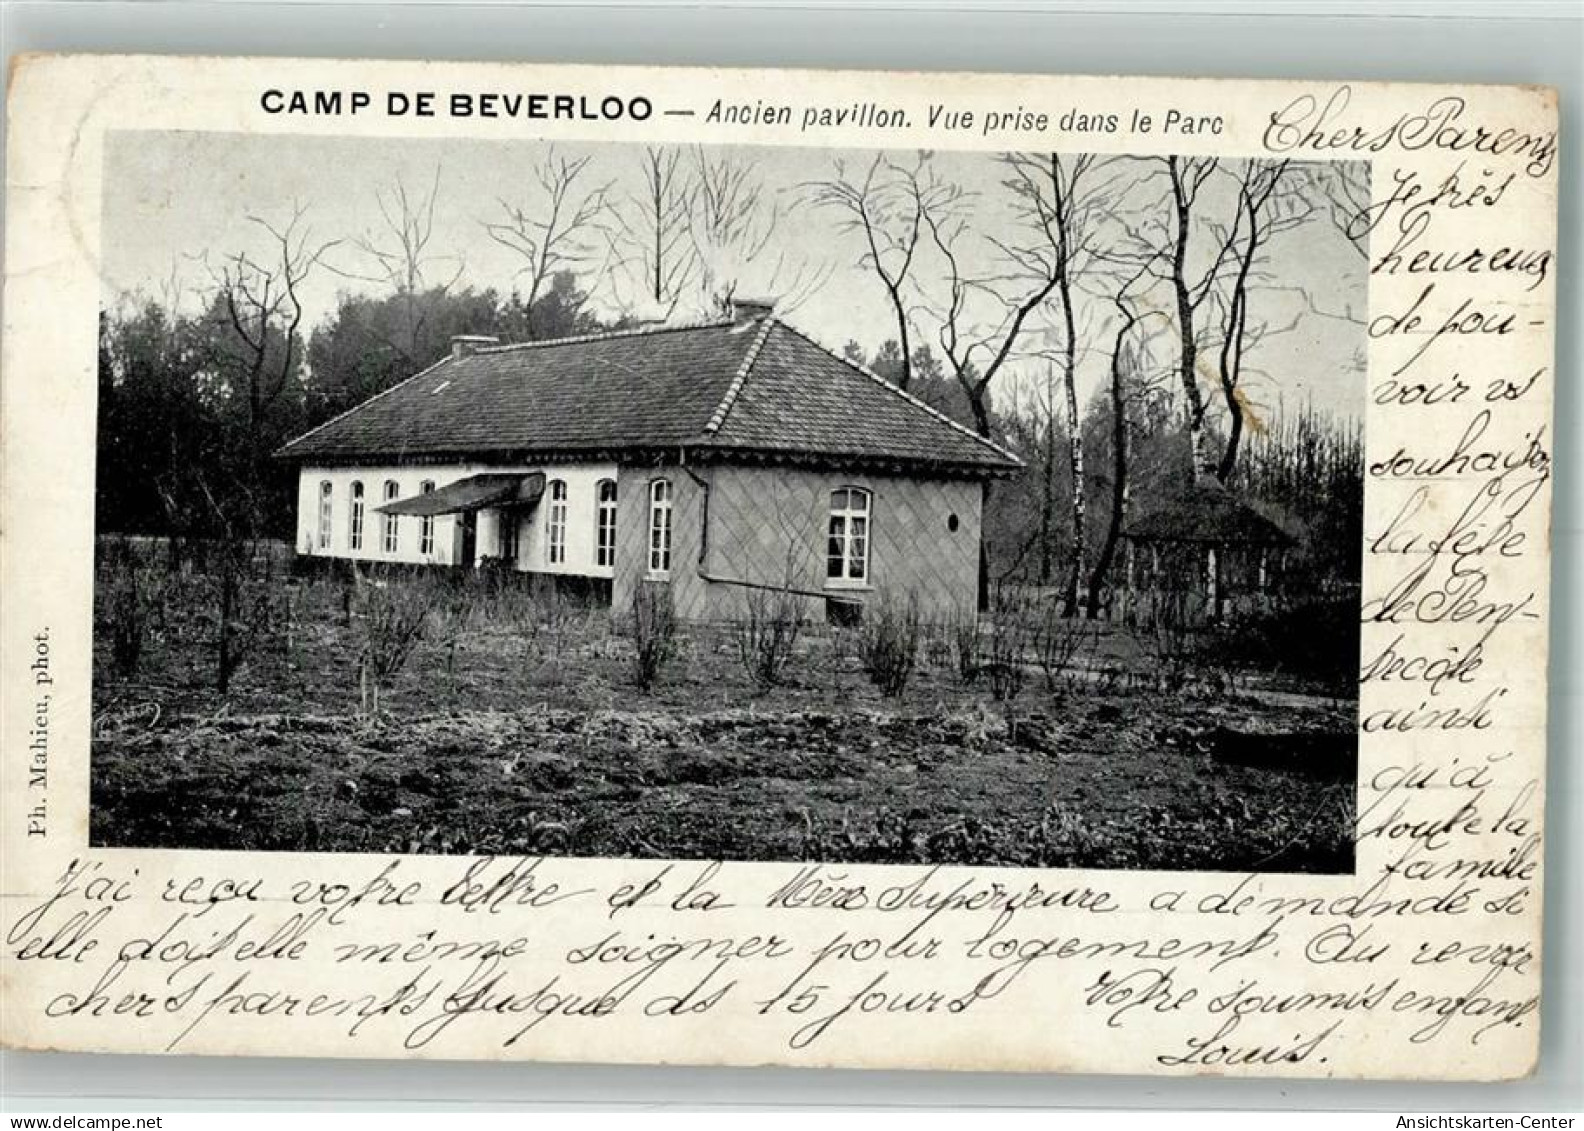 CAMP DE BEVERLOO — Ancien pavillon. Vue prise dans le Parc
Chers Parents
Je très
heureux
de pou-
voir vs
souhaiter
la fête
de Pen-
tecôte
ainsi
qu'à
toute la
famille
J'ai reçu votre lettre et la Mère Supérieure a demandé si
elle doit elle même soigner pour logement. Au revoir
chers parents jusque ds 15 jours Votre soumis enfant.
Louis.
Ph. Mahieu, phot.
delcampe.net
Ansichtskarten-Center